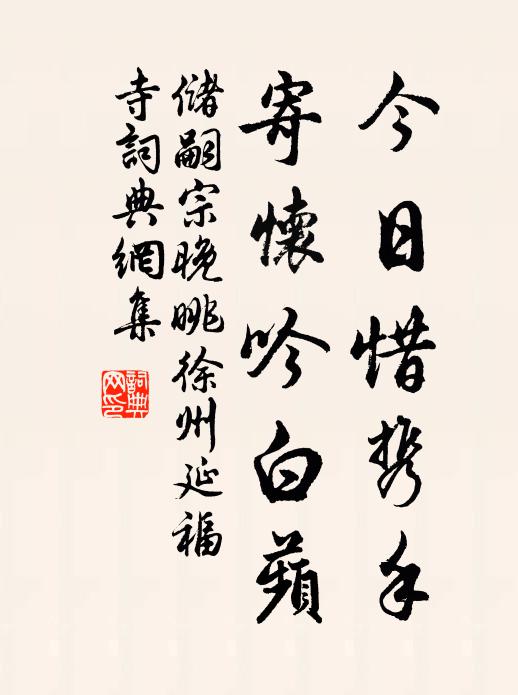 今日惜携手
寄懷吟白蘋
儲嗣宗晚眺徐州延福
寺詞典網集
詞典網印